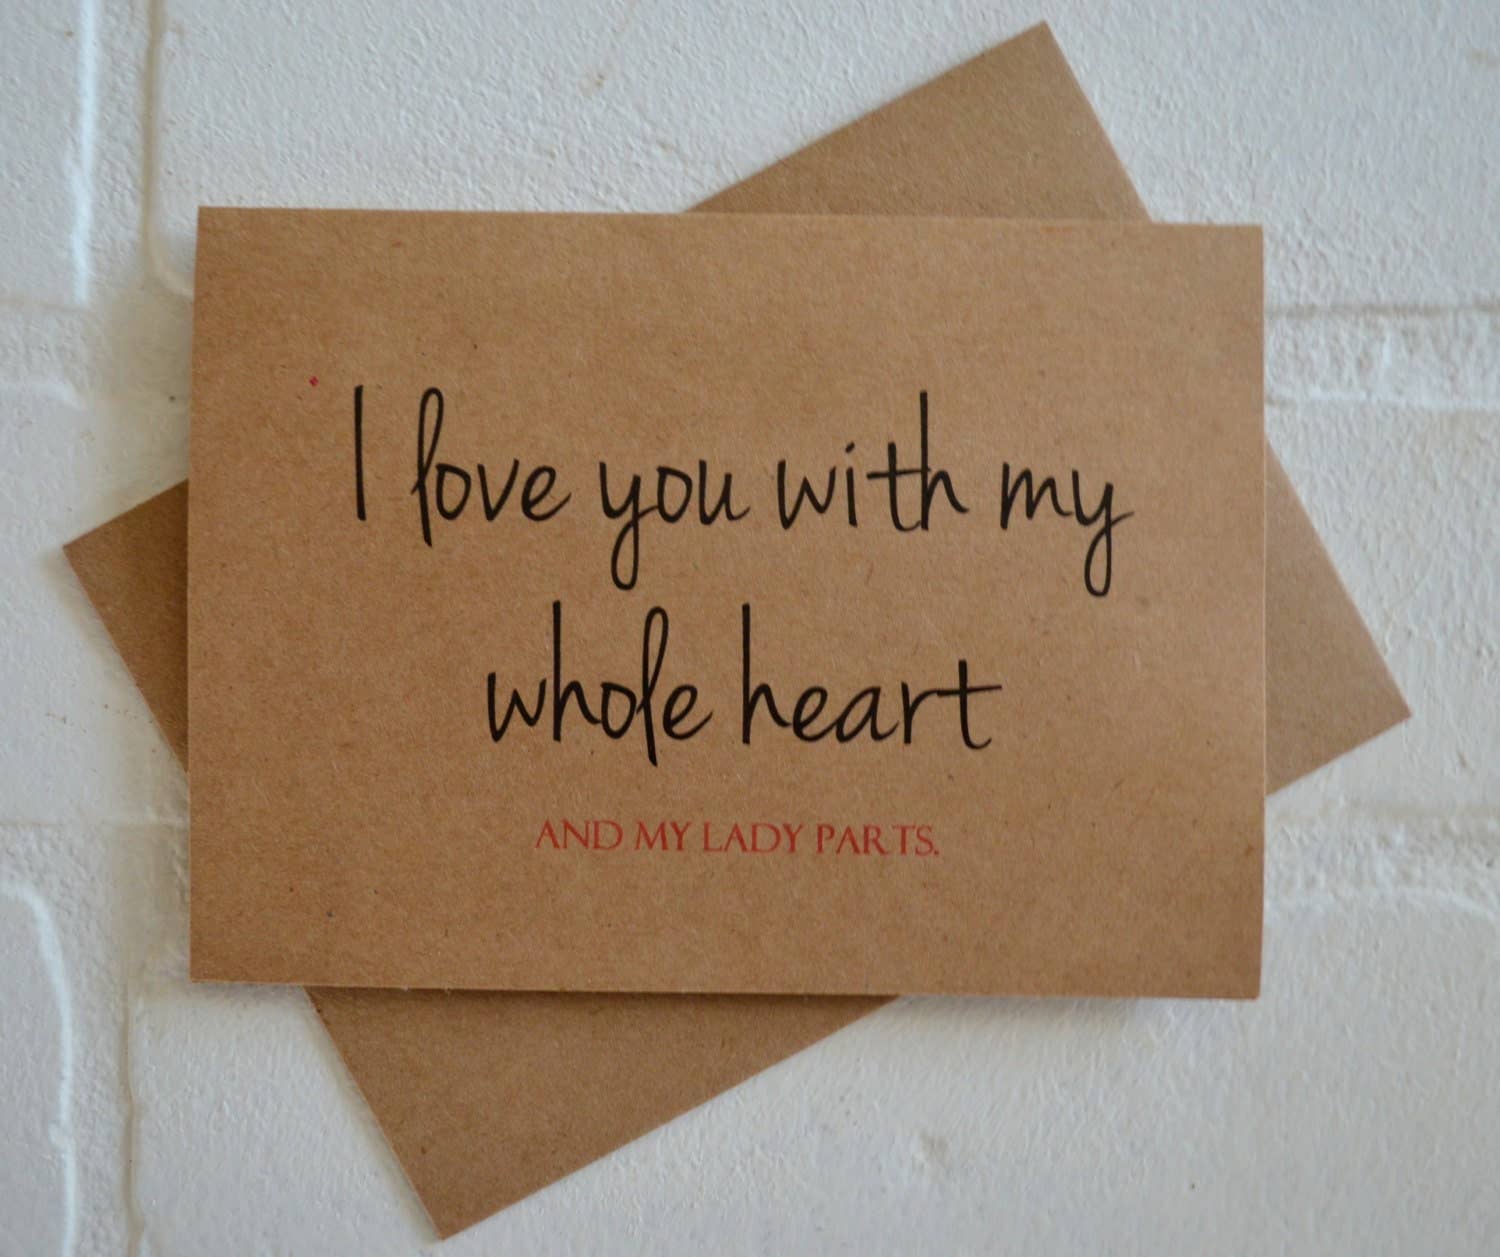 I love you with my
whole heart
AND MY LADY PARTS.